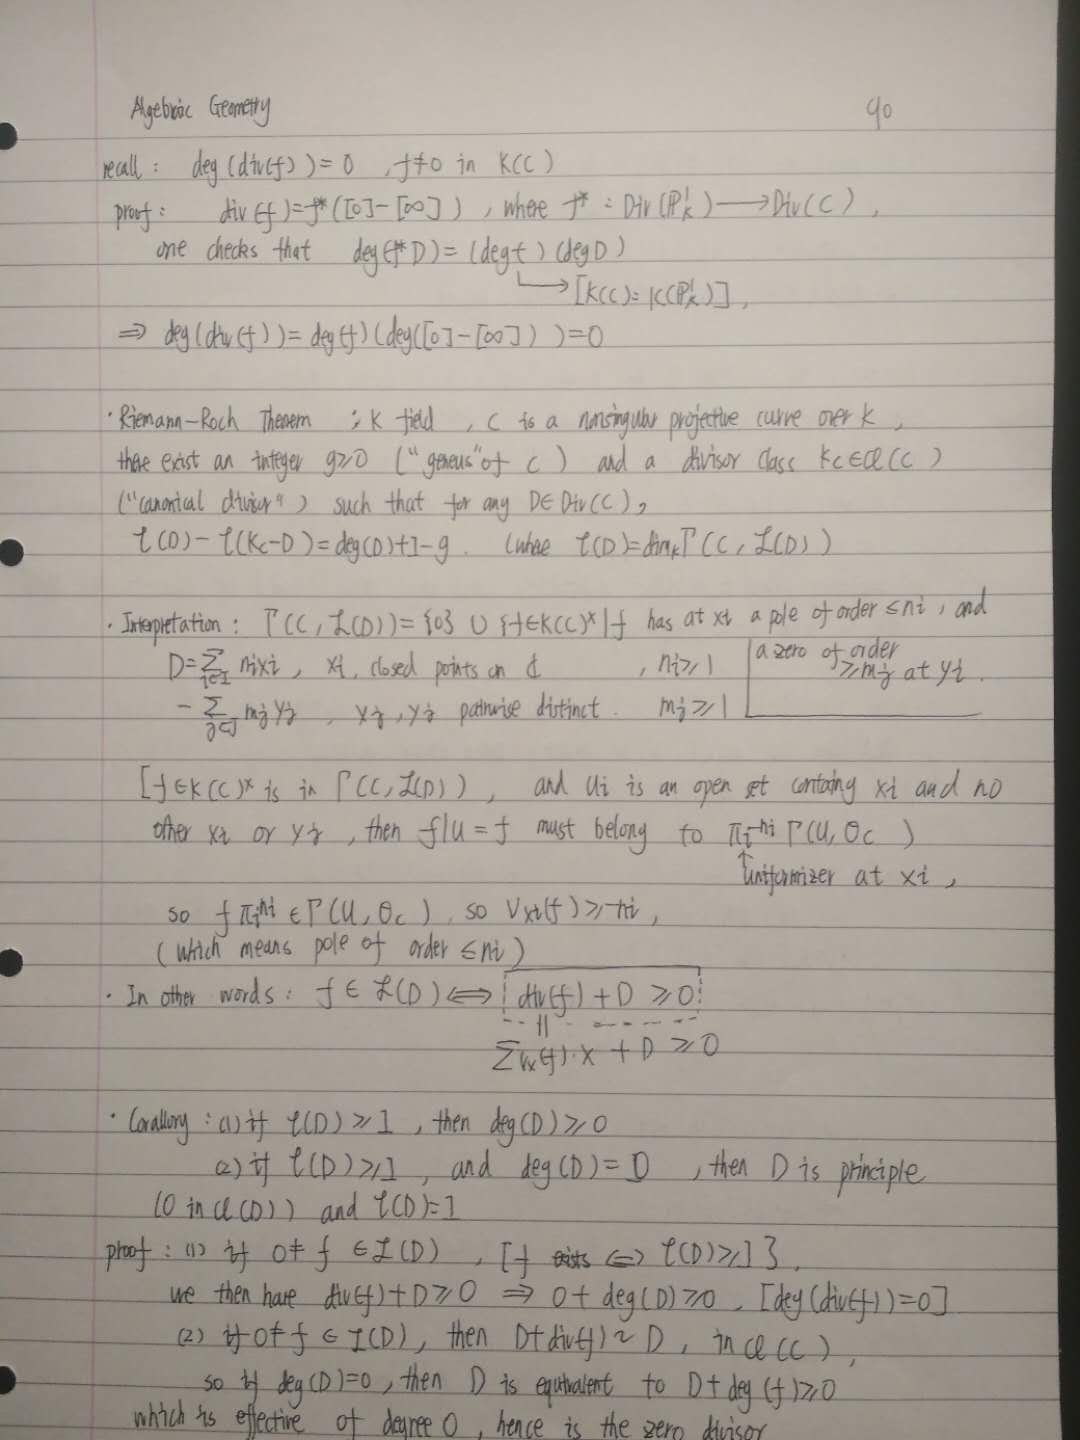 Algebraic Geometry 90
recall: deg(div(f))=0 , f≠0 in K(C)
proof: div(f)=f*([0]-[∞]) , where f* : Div(ℙ¹ₖ)⟶Div(C) ,
one checks that deg(f*D)=(deg f)(deg D)
↳[K(C):K(ℙ¹ₖ)] ,
⇒ deg(div(f))=deg(f)(deg([0]-[∞]))=0
· Riemann-Roch Theorem : K field , C is a nonsingular projective curve over k ,
there exist an integer g≥0 ("geneus" of C) and a divisor class Kc∈Cl(C)
("canonical divisor") such that for any D∈Div(C) ,
ℓ(D)-ℓ(Kc-D)=deg(D)+1-g . (where ℓ(D)=dimₖΓ(C, ℒ(D))
· Interpretation : Γ(C, ℒ(D))={0} ∪ {f∈K(C)ˣ|f has at xi a pole of order ≤ni , and
D=∑i∈I nixi , xi, closed points on C , ni≥1 a zero of order ≥mj at yj .
-∑j∈J mjyj , xj, yj pairwise distinct . mj≥1
[f∈K(C)ˣ is in Γ(C, ℒ(D)) , and Ui is an open set containg xi and no
other xi or yj , then f|U=f must belong to πi^-ni Γ(U, Oc)
↑ uniformizer at xi ,
so f πi^ni ∈Γ(U, Oc) . so Vxi(f)≥-ni ,
(which means pole of order ≤ni)
· In other words : f∈ ℒ(D)⟺ div(f)+D≥0
∑Vx(f)·x + D ≥0
· Corallory : (1) if ℓ(D)≥1 , then deg(D)≥0
(2) if ℓ(D)≥1 , and deg(D)=0 , then D is principle
(0 in Cl(D)) and ℓ(D)=1
proof : (1) if 0≠f∈ℒ(D) , [f exists ⟺ ℓ(D)≥1] ,
we then have div(f)+D≥0 ⇒ 0+deg(D)≥0 . [deg(div(f))=0]
(2) if 0≠f∈ℒ(D) , then D+div(f)~D , in Cl(C) ,
so if deg(D)=0 , then D is equivalent to D+deg(f)≥0
which is effective of degree 0 , hence is the zero divisor